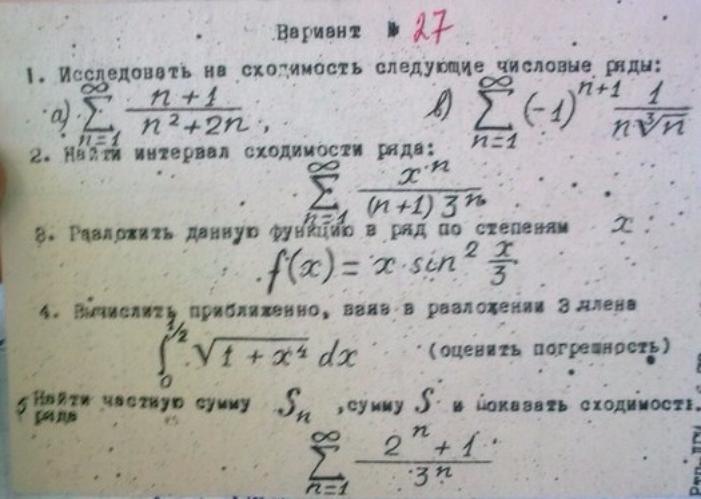 Вариант № 27
1. Исследовать на сходимость следующие числовые ряды:
а) ∑_{n=1}^{∞} (n+1)/(n²+2n), в) ∑_{n=1}^{∞} (-1)^{n+1} 1/(n∛n)
2. Найти интервал сходимости ряда:
∑_{n=1}^{∞} xⁿ/((n+1) 3ⁿ)
3. Разложить данную функцию в ряд по степеням x.
f(x) = x · sin² x/3
4. Вычислить приближенно, взяв в разложении 3 члена
∫_{0}^{1/2} √(1 + x⁴) dx (оценить погрешность)
5 Найти частную сумму Sₙ, сумму S и показать сходимость.
ряда
∑_{n=1}^{∞} (2ⁿ + 1)/3ⁿ